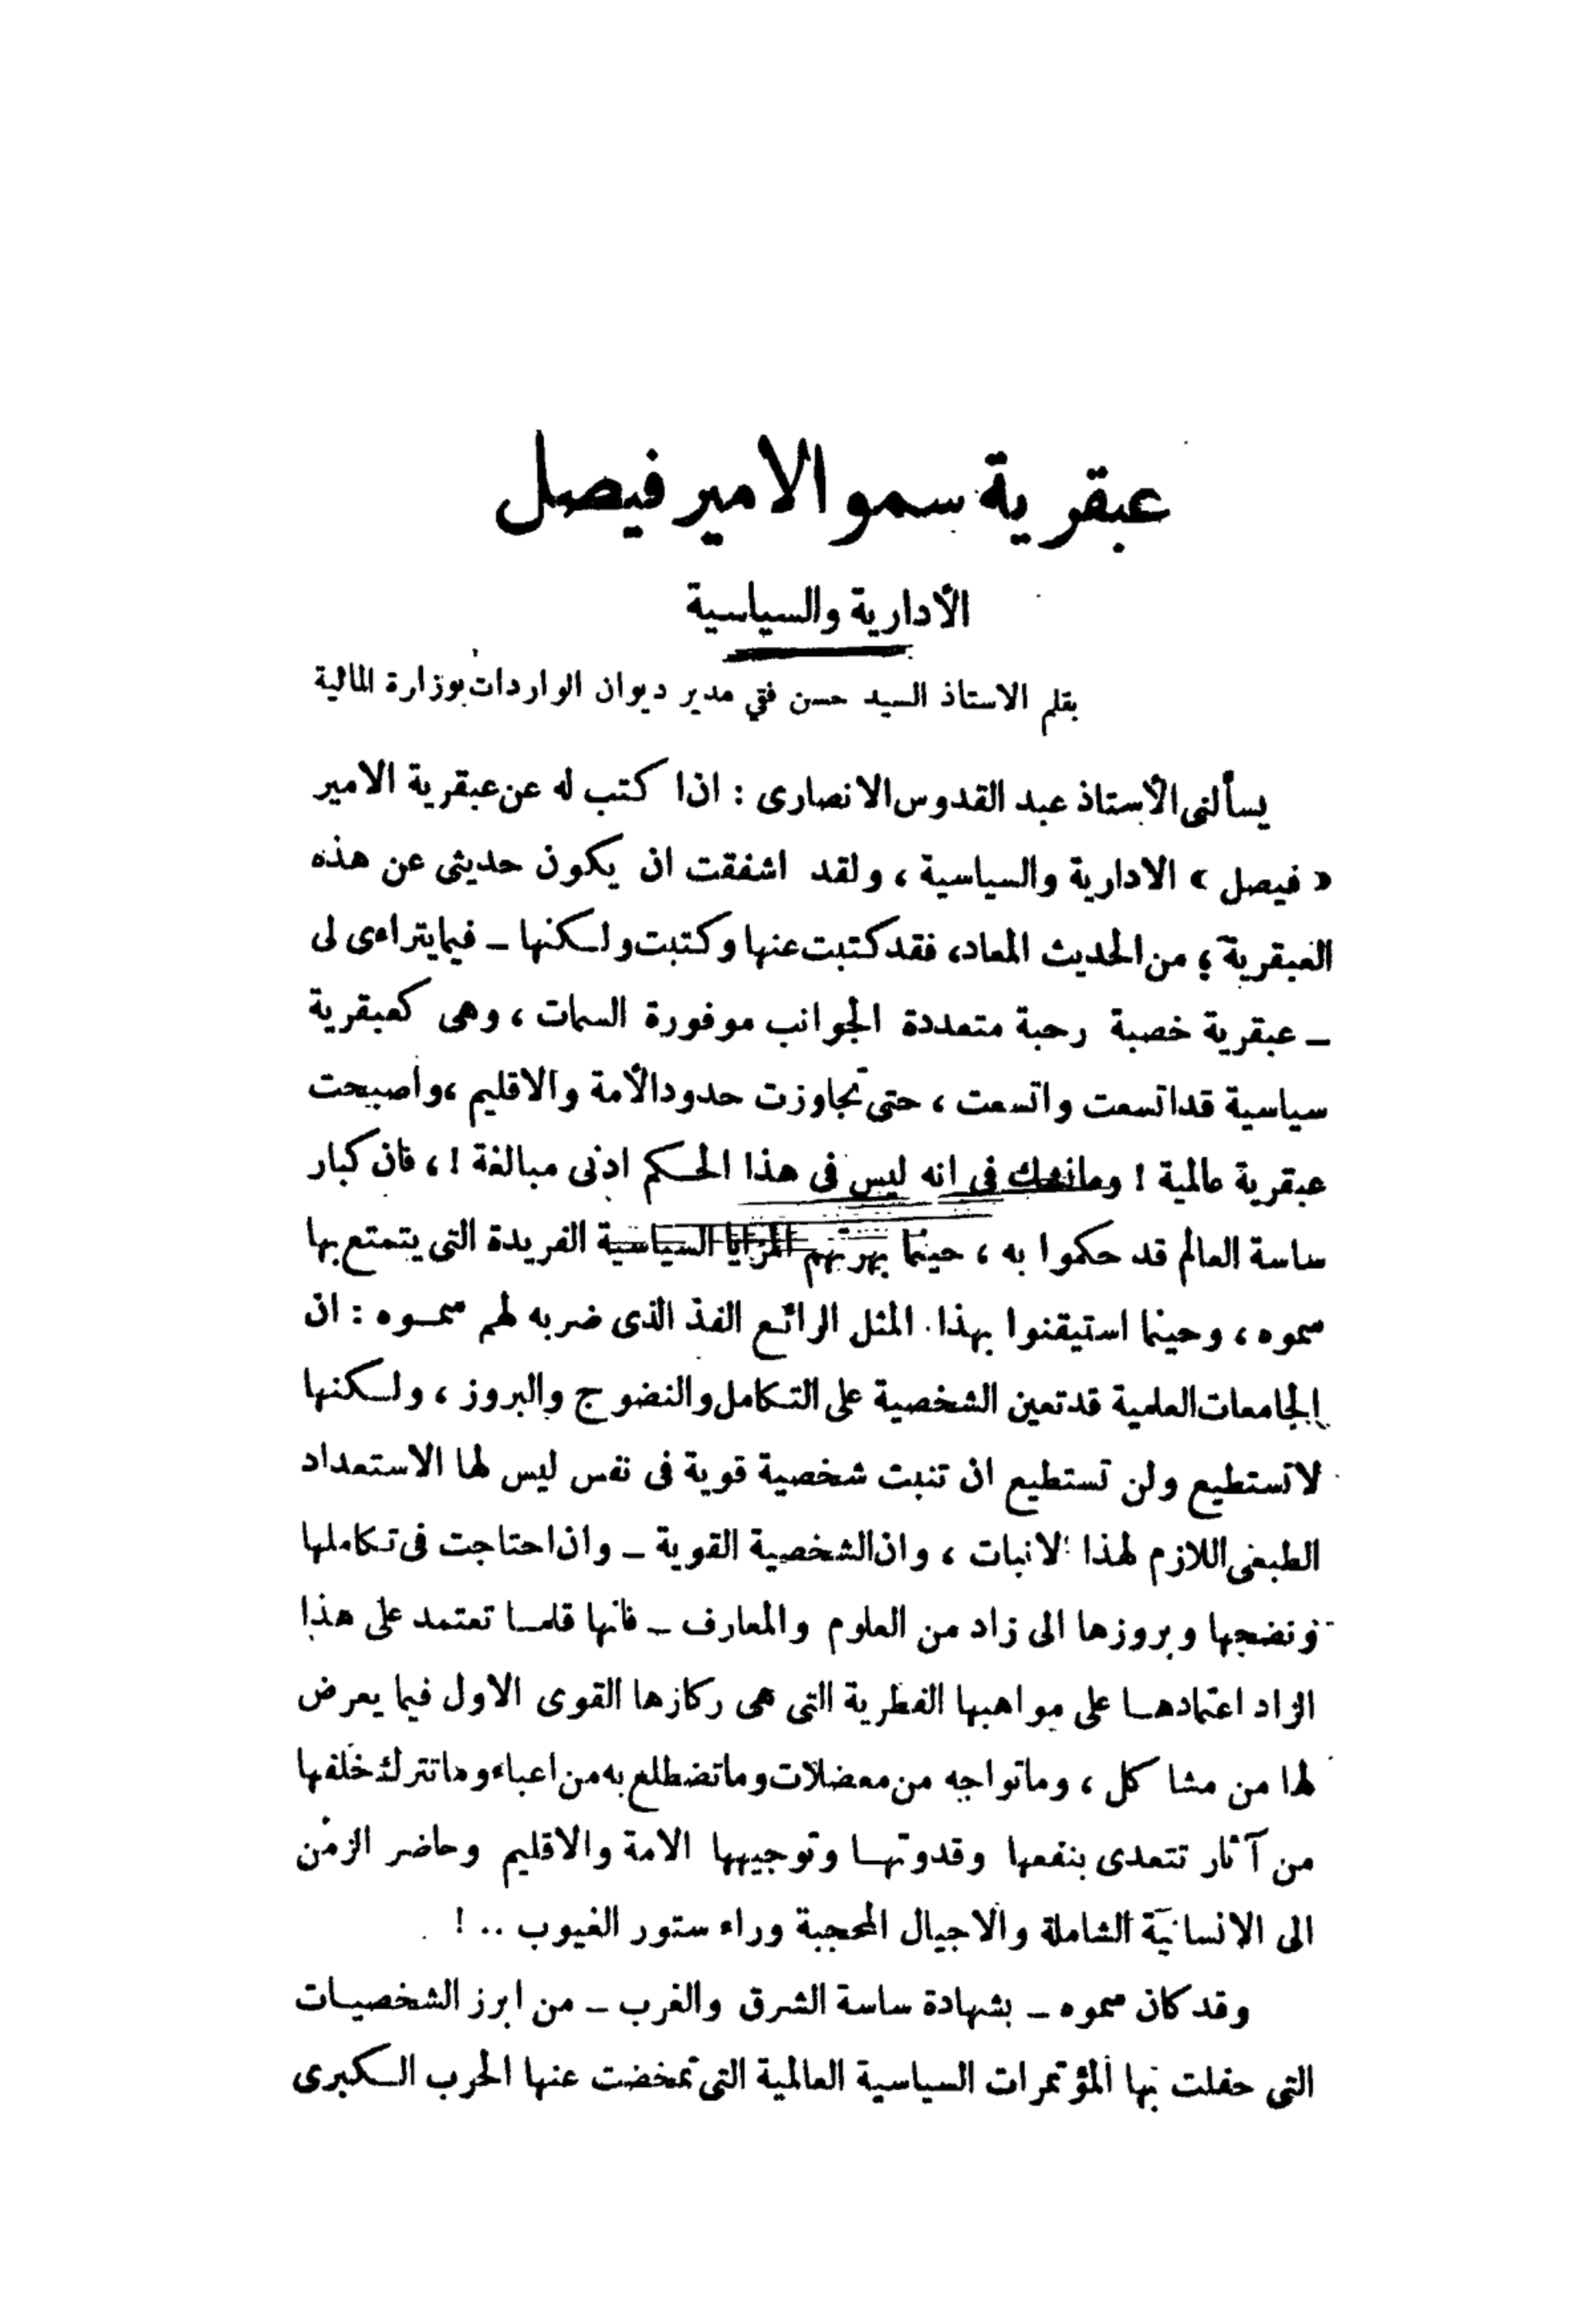 عبقرية سمو الامير فيصل
الأدارية والسياسية
بقلم الاستاذ السيد حسن فقي مدير ديوان الواردات بوزارة المالية
يسألنى الأستاذ عبد القدوس الانصارى : ان اكتب له عن عبقرية الامير
« فيصل » الادارية والسياسية ، ولقد اشفقت ان يكون حديثى عن هذه
العبقرية ؛ من الحديث المعاد ، فقد كتبت عنها وكتبت ولكنها – فيما يتراءى لى
– عبقرية خصبة رحبة متعددة الجوانب موفورة السمات ، وهى كعبقرية
سياسية قد اتسعت واتسعت ، حتى تجاوزت حدود الأمة والاقليم ، وأصبحت
عبقرية عالمية ! وما نشك فى انه ليس فى هذا الحكم ادنى مبالغة ! ، فان كبار
ساسة العالم قد حكموا به ، حينما بهرتهم المزايا السياسية الفريدة التى يتمتع بها
سموه ، وحينما استيقنوا بهذا المثل الرائع الفذ الذى ضربه لهم سموه : ان
الجامعات العلمية قد تعين الشخصية على التكامل والنضوج والبروز ، ولكنها
لا تستطيع ولن تستطيع ان تنبت شخصية قوية فى نفس ليس لها الاستعداد
الطبعى اللازم لهذا الانبات ، وان الشخصية القوية – وان احتاجت فى تكاملها
ونضجها وبروزها الى زاد من العلوم والمعارف – فانها قلما تعتمد على هذا
الزاد اعتمادها على مواهبها الفطرية التى هى ركازها القوى الاول فيما يعرض
لها من مشاكل ، وما تواجه من معضلات وما تضطلع به من اعباء وما تترك خلفها
من آثار تتعدى بنفعها وقدوتها وتوجيهها الامة والاقليم وحاضر الزمن
الى الانسانية الشاملة والاجيال المحجبة وراء ستور الغيوب .. !
وقد كان سموه – بشهادة ساسة الشرق والغرب – من ابرز الشخصيات
التى حفلت بها المؤتمرات السياسية العالمية التى تمخضت عنها الحرب الكبرى